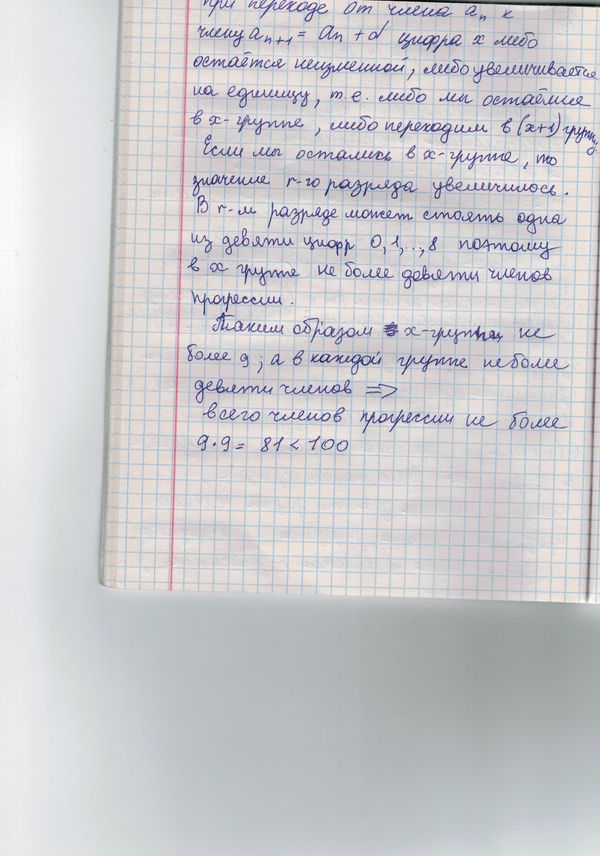 при переходе от члена aₙ к
члену aₙ₊₁ = aₙ + d цифра x либо
остаётся неизменной, либо увеличивается
на единицу, т.е. либо мы остаёмся
в x-группе, либо переходим в (x+1) группу
Если мы остались в x-группе, то
значение r-го разряда увеличилось.
В r-м разряде может стоять одна
из девяти цифр 0,1,..,8 поэтому
в x группе не более девяти членов
прогрессии.
Таким образом x-групп не
более 9; а в каждой группе не более
девяти членов ⇒
всего членов прогрессии не более
9·9 = 81 < 100